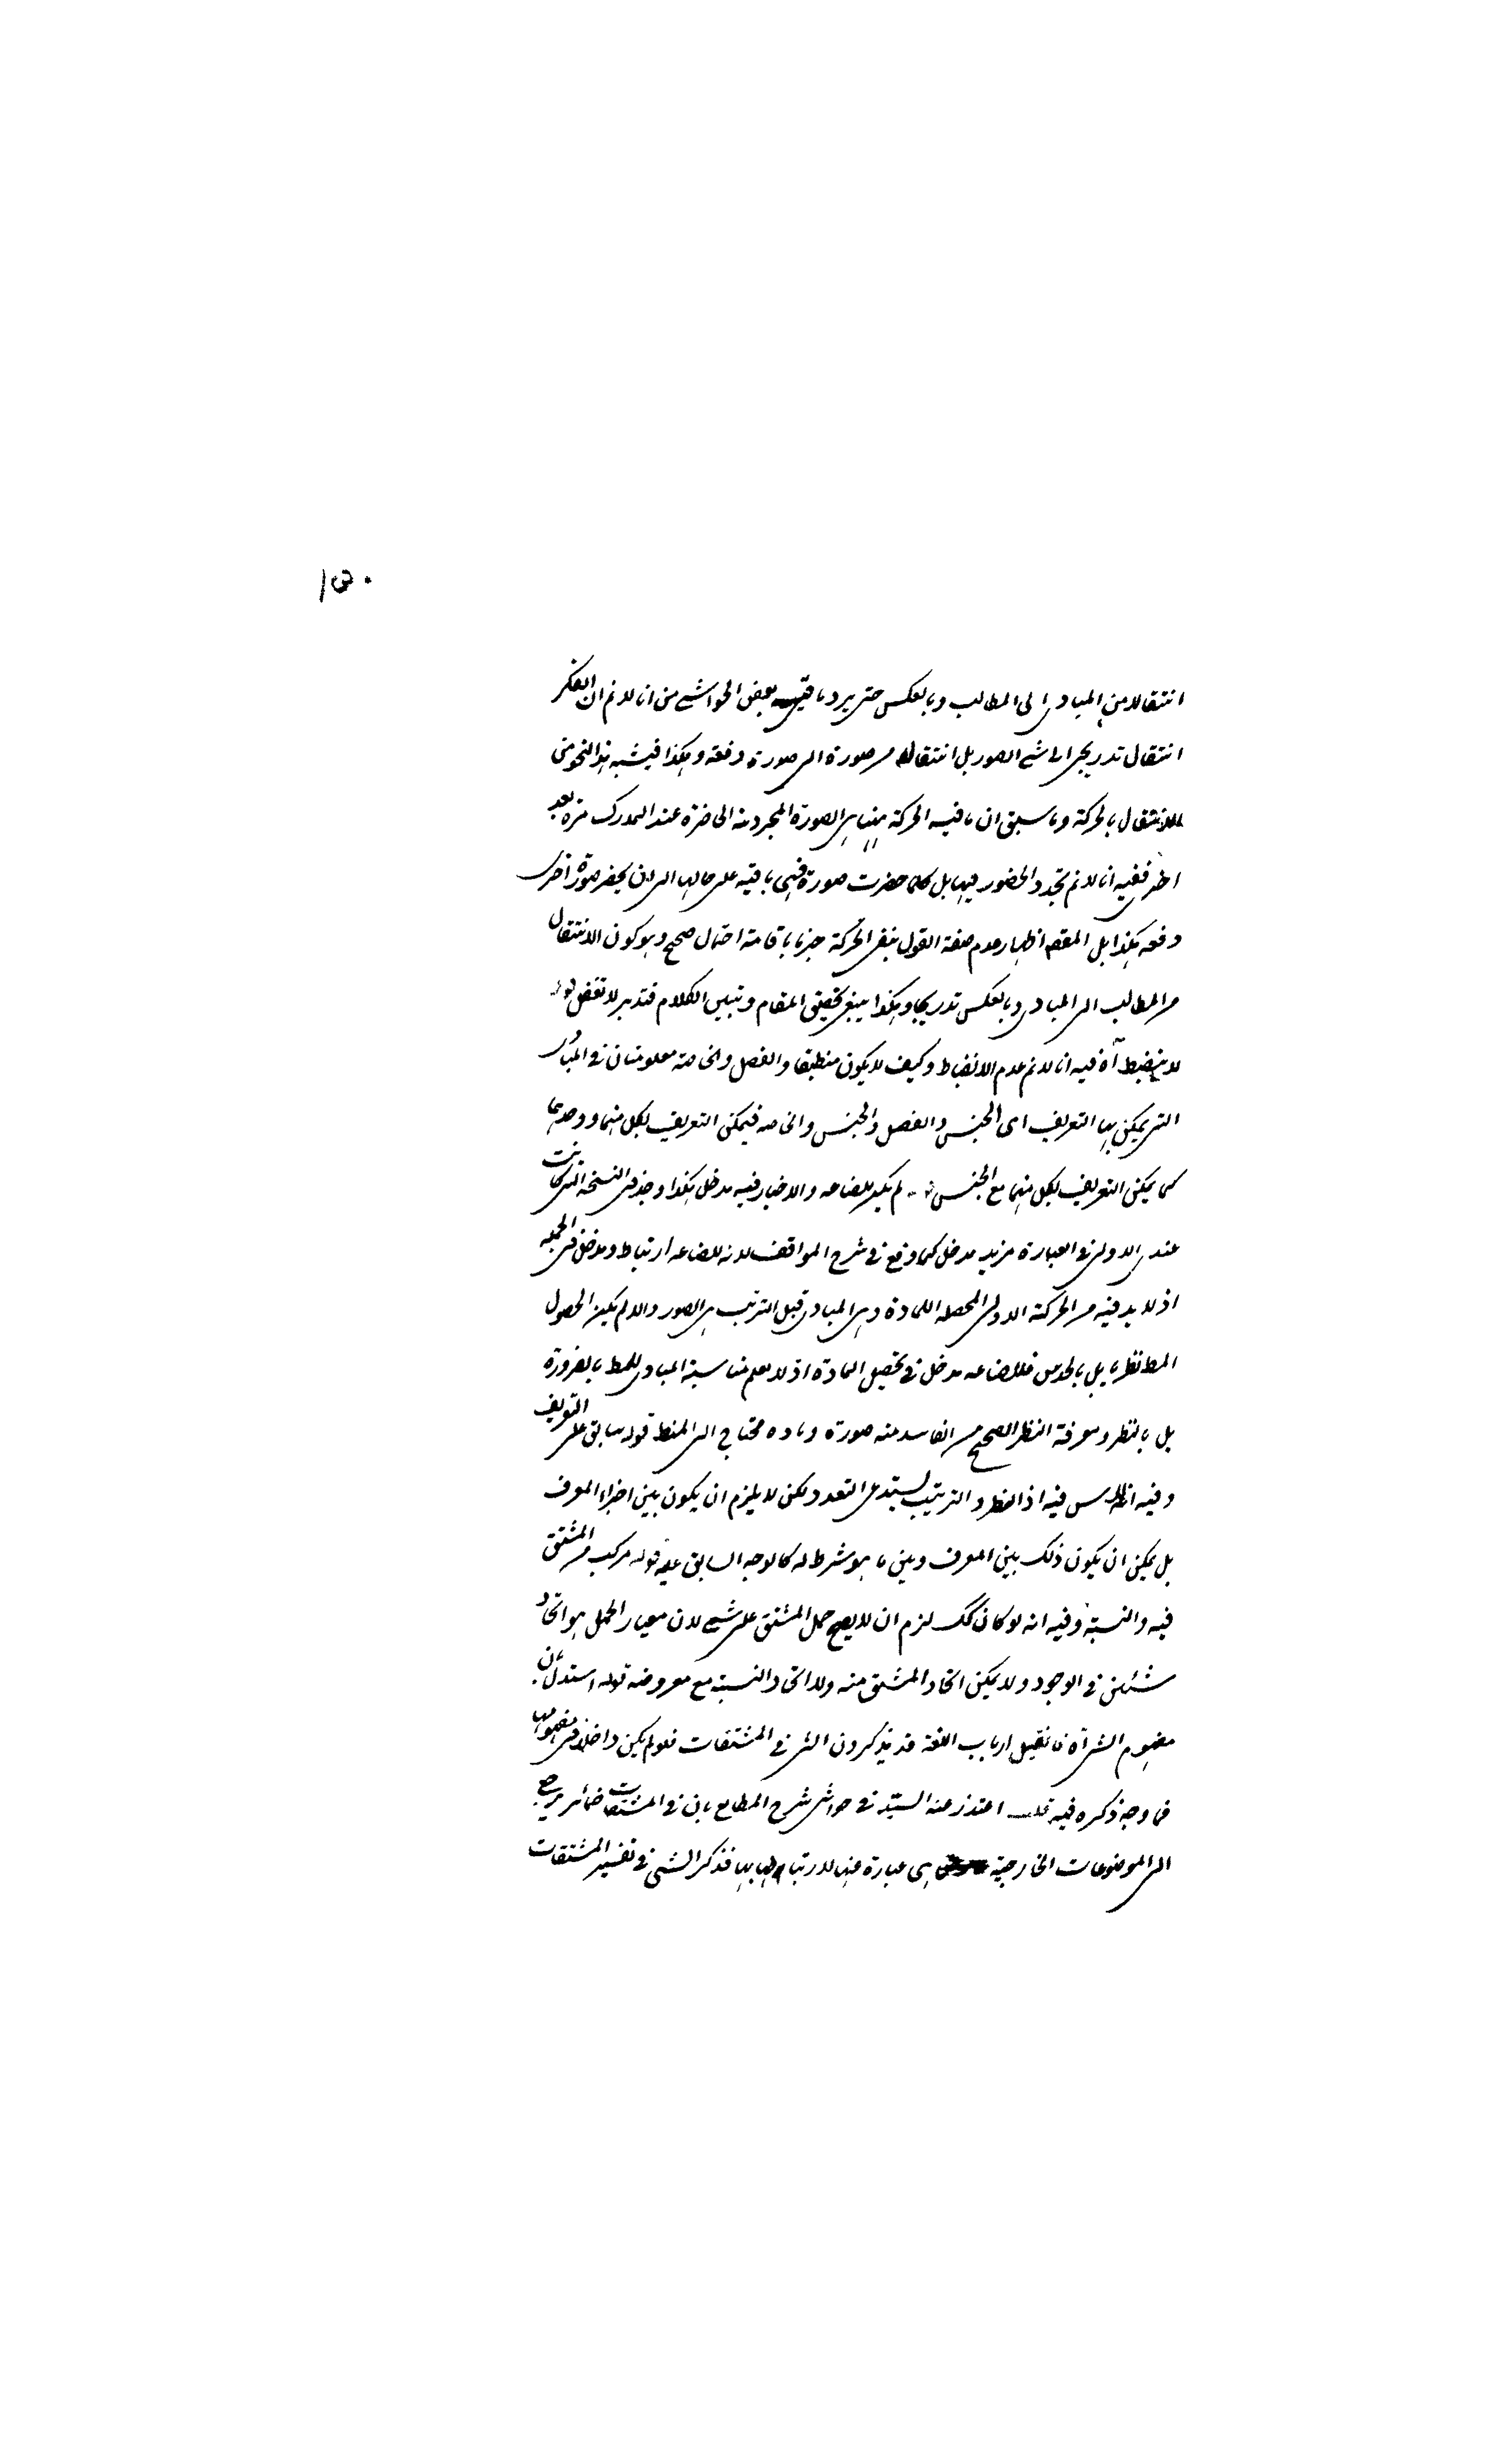 ١٥٠
انتقالا من المبادى الى المطالب وبالعكس حتى يرد ما قيل بعض الحواشى من انا لا نم ان الفكر
انتقال تدريجى الى شىء الصور بل انتقاله من صورة الى صورة دفعة وهكذا فيشبه هذا النحو من
الانتقال بالحركة وما سبق ان ما فيه الحركة منها هى الصورة المجردية الحاضرة عند المدرك مرة بعد
اخرى ففيه انا لا نم تجدد الحضور فيها بل كلما حضرت صورة فهى باقية على حالها الى ان يحضر صورة اخرى
دفعه هكذا بل المقصود اظهار عدم صفة القول بنفى الحركة جزما باقامة احتمال صحيح وهو كون الانتقال
من المطالب الى المبادى وبالعكس تدريجا وهكذا ينبغى تحقيق المقام وتبيين الكلام فتدبر لا تغفل قوله
لا ينضبط آه فيه انا لا نم عدم الانضباط وكيف لا يكون منطبقا والفصل والخاصة معلومتان فى المبادى
التى يمكن بها التعريف اى الجنس والفصل والجنس والخاصه فيمكن التعريف بكل منهما ووحدهما
كما يمكن التعريف بكل منهما مع الجنس قوله لم يكن للصناعه والاختيار فيه مدخل هكذا وجد فى النسخة التى كانت
عندى الاولى فى العبارة مزيد مدخل كما وقع فى شرح المواقف لانه للصناعه ارتباط ومدخل فى الجملة
اذ لا بد فيه من الحركة الاولى المحصلة للمادة وهى المبادى قبل الترتيب هى الصور والا لم يكن الحصول
المط نظريا بل بالحدس فللصناعه مدخل فى تحصيل المادة اذ لا يعلم مناسبة المبادى للمط بالضرورة
بل بالنظر ومعرفة النظر الصحيح من الفاسد منه صورة ومادة محتاج الى المنطق قوله سابق على التعريف
وفيه انه ليس فيه اذ النظر والترتيب يستدعى التعدد لكن لا يلزم ان يكون بين اجزاء المعرف
بل يمكن ان يكون ذلك بين المعرف وبين ما هو شرط له كالوجه السابق عليه قوله مركب من المشتق
فيه والنسبة وفيه انه لو كان كك لزم ان لا يصح حمل المشتق على شىء لان معيار الحمل هو اتحاد
شيئين فى الوجود ولا يمكن اتحاد المشتق منه ولا اتحاد النسبة مع معروضه قوله استدل بان
مفهوم الشىء آه فان قيل ارباب اللغة قد يذكرون الشىء فى المشتقات فلو لم يكن داخلا فى مفهومها
فما وجه ذكره فيه قلت اعتذر عنه السيد فى حواشى شرح المطالع بان فى المشتقات ضمائر يرجع
الى الموضوعات الخارجية هى عبارة عنها لارتباطها بها فذكر الشىء فى تفسير المشتقات